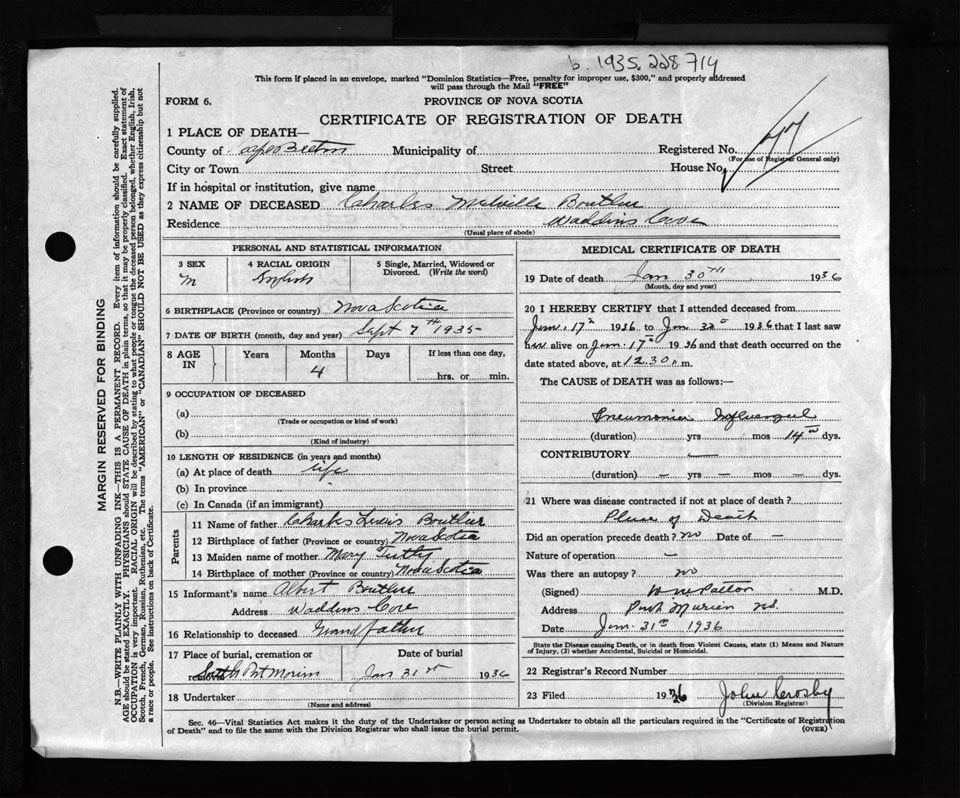 b. 1935.228714
This form if placed in an envelope, marked "Dominion Statistics—Free, penalty for improper use, $300," and properly addressed
will pass through the Mail "FREE"
FORM 6.
PROVINCE OF NOVA SCOTIA
CERTIFICATE OF REGISTRATION OF DEATH
1 PLACE OF DEATH—
County of Cape Breton Municipality of Registered No. 77
(For use of Registrar General only)
City or Town Street House No.
If in hospital or institution, give name
2 NAME OF DECEASED Charles Melville Boutlier
Residence Waddins Cove
(Usual place of abode)
PERSONAL AND STATISTICAL INFORMATION
3 SEX 4 RACIAL ORIGIN 5 Single, Married, Widowed or
Divorced. (Write the word)
M English
6 BIRTHPLACE (Province or country) Nova Scotia
7 DATE OF BIRTH (month, day and year) Sept 7th 1935
8 AGE IN Years Months Days If less than one day,
4 hrs. or min.
9 OCCUPATION OF DECEASED
(a)
(Trade or occupation or kind of work)
(b)
(Kind of industry)
10 LENGTH OF RESIDENCE (in years and months)
(a) At place of death life
(b) In province
(c) In Canada (if an immigrant)
Parents
11 Name of father Charles Lewis Boutlier
12 Birthplace of father (Province or country) Nova Scotia
13 Maiden name of mother Mary
14 Birthplace of mother (Province or country) Nova Scotia
15 Informant's name Albert Boutlier
Address Waddens Cove
16 Relationship to deceased Grandfather
17 Place of burial, cremation or Date of burial
South Port Morien Jan 31st 1936
18 Undertaker
(Name and address)
MEDICAL CERTIFICATE OF DEATH
19 Date of death Jan 30TH 1936
(Month, day and year)
20 I HEREBY CERTIFY that I attended deceased from
Jan. 17th 1936 to Jan 1936 that I last saw
him alive on Jan. 17th 1936 and that death occurred on the
date stated above, at 12.30 m.
The CAUSE of DEATH was as follows:—
Pneumonia Influenzal
(duration) yrs mos 14 dys.
CONTRIBUTORY —
(duration) — yrs — mos — dys.
21 Where was disease contracted if not at place of death?
Place of Death
Did an operation precede death? no Date of —
Nature of operation —
Was there an autopsy? no
(Signed) Patton M.D.
Address Port Morien N.S.
Date Jan. 31st 1936
State the Disease causing Death, or in death from Violent Causes, state (1) Means and Nature
of Injury, (2) whether Accidental, Suicidal or Homicidal.
22 Registrar's Record Number
23 Filed 1936 John Crosby
(Division Registrar)
Sec. 46—Vital Statistics Act makes it the duty of the Undertaker or person acting as Undertaker to obtain all the particulars required in the "Certificate of Registration
of Death" and to file the same with the Division Registrar who shall issue the burial permit. (OVER)
MARGIN RESERVED FOR BINDING
N.B.—WRITE PLAINLY WITH UNFADING INK—THIS IS A PERMANENT RECORD. Every item of information should be carefully supplied.
AGE should be stated EXACTLY. PHYSICIANS should STATE CAUSE OF DEATH in plain terms, so that it may be properly classified. Exact statement of
OCCUPATION is very important. RACIAL ORIGIN will be described by stating to what people or tongue the deceased person belonged, whether English, Irish,
Scotch, French, German, Russian, Ruthenian, etc. The terms "AMERICAN" or "CANADIAN" SHOULD NOT BE USED as they express citizenship but not
a race or people. See instructions on back of Certificate.